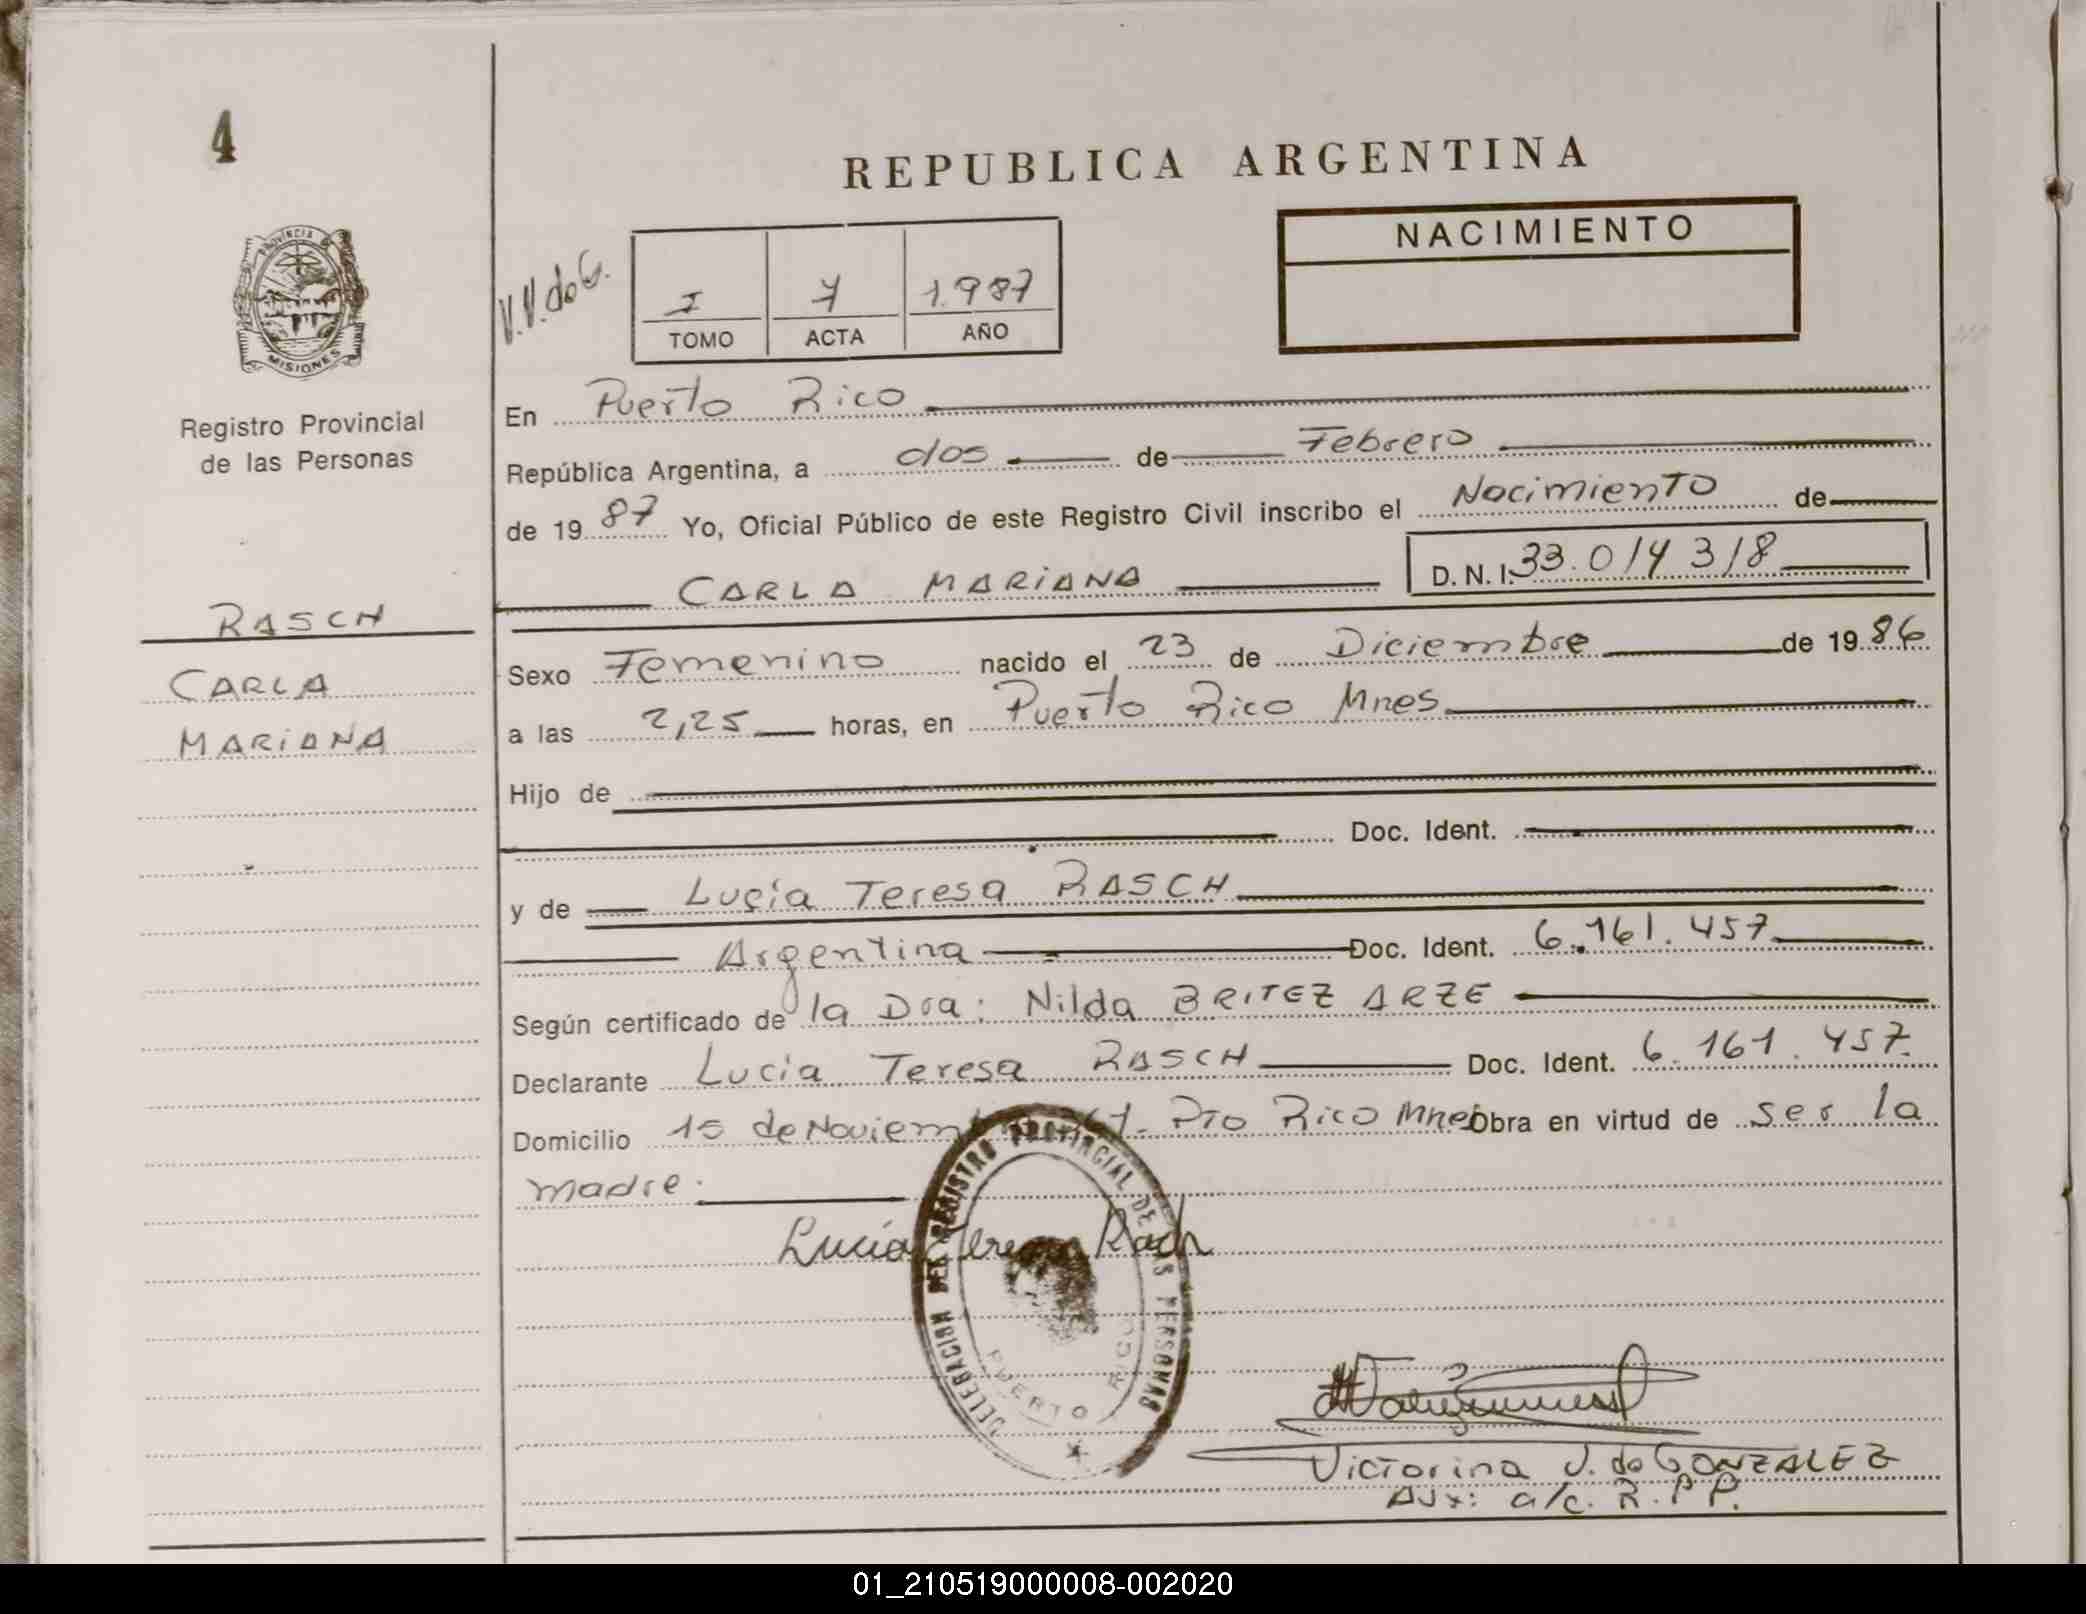 4
REPUBLICA ARGENTINA
NACIMIENTO
V.V. de G.
I 7 1.987
TOMO ACTA AÑO
PROVINCIA DE
MISIONES
Registro Provincial
de las Personas
RASCH
CARLA
MARIANA
En Puerto Rico
República Argentina, a dos de Febrero
de 19 87 Yo, Oficial Público de este Registro Civil inscribo el Nacimiento de
CARLA MARIANA D. N. I. 33.014318
Sexo Femenino nacido el 23 de Diciembre de 19 86
a las 2,25 horas, en Puerto Rico Mnes
Hijo de
Doc. Ident.
y de Lucía Teresa RASCH
Argentina Doc. Ident. 6.161.457
Según certificado de la Dra: Nilda BRITEZ ARZE
Declarante Lucia Teresa RASCH Doc. Ident. 6.161.457.
Domicilio 15 de Noviem Pto Rico Mnes Obra en virtud de ser la
madre.
Lucia Teresa Rach
DELEGACION DEL REGISTRO PROVINCIAL DE LAS PERSONAS
PUERTO RICO
Victorina V. de GONZALEZ
Aux: a/c. R.P.P.
01_210519000008-002020